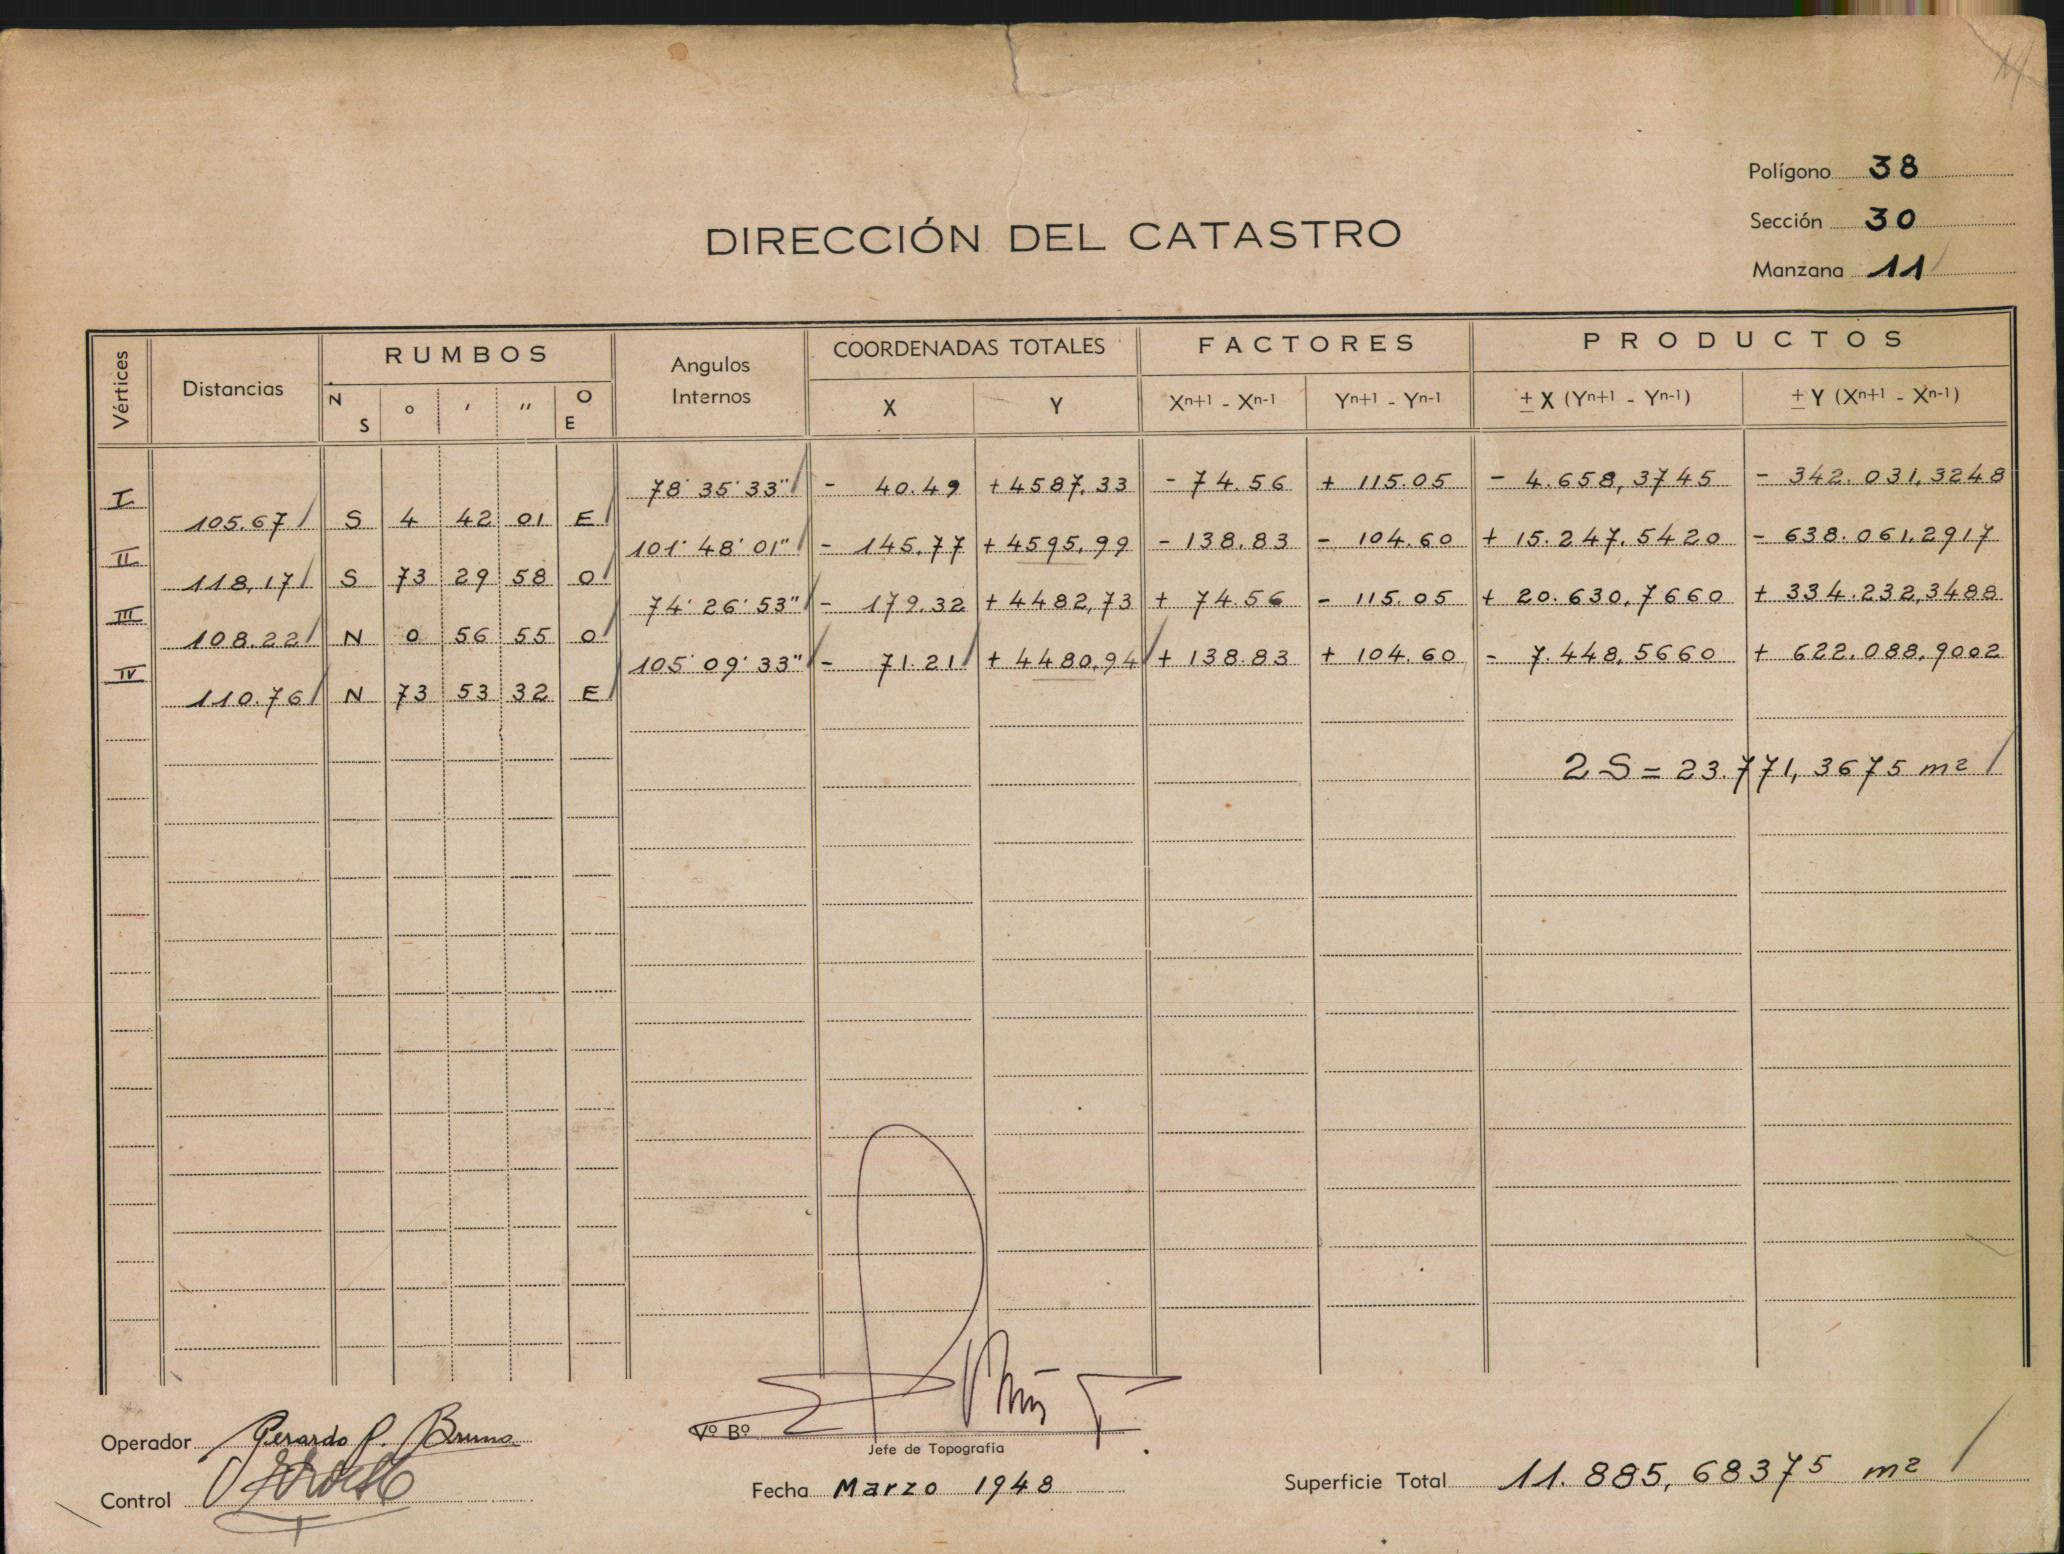 Polígono 38
Sección 30
Manzana 11
DIRECCIÓN DEL CATASTRO
Vértices Distancias RUMBOS Angulos Internos COORDENADAS TOTALES FACTORES PRODUCTOS
N S ° ' '' O E X Y Xn+1 - Xn-1 Yn+1 - Yn-1 ± X (Yn+1 - Yn-1) ± Y (Xn+1 - Xn-1)
I 78° 35' 33" - 40.49 + 4587,33 - 74.56 + 115.05 - 4.658,3745 - 342.031,3248
105.67 S 4 42 01 E
II 101° 48' 01" - 145.77 + 4595,99 - 138.83 - 104.60 + 15.247,5420 - 638.061,2917
118,17 S 73 29 58 O
III 74° 26' 53" - 179.32 + 4482,73 + 74.56 - 115.05 + 20.630,7660 + 334.232,3488
108.22 N 0 56 55 O
IV 105° 09' 33" - 71.21 + 4480,94 + 138.83 + 104.60 - 7.448,5660 + 622.088,9002
110.76 N 73 53 32 E
2 S = 23.771,3675 m2
Operador Gerardo P. Bruno
Control
Vº Bº
Jefe de Topografía
Fecha Marzo 1948
Superficie Total 11.885,68375 m2